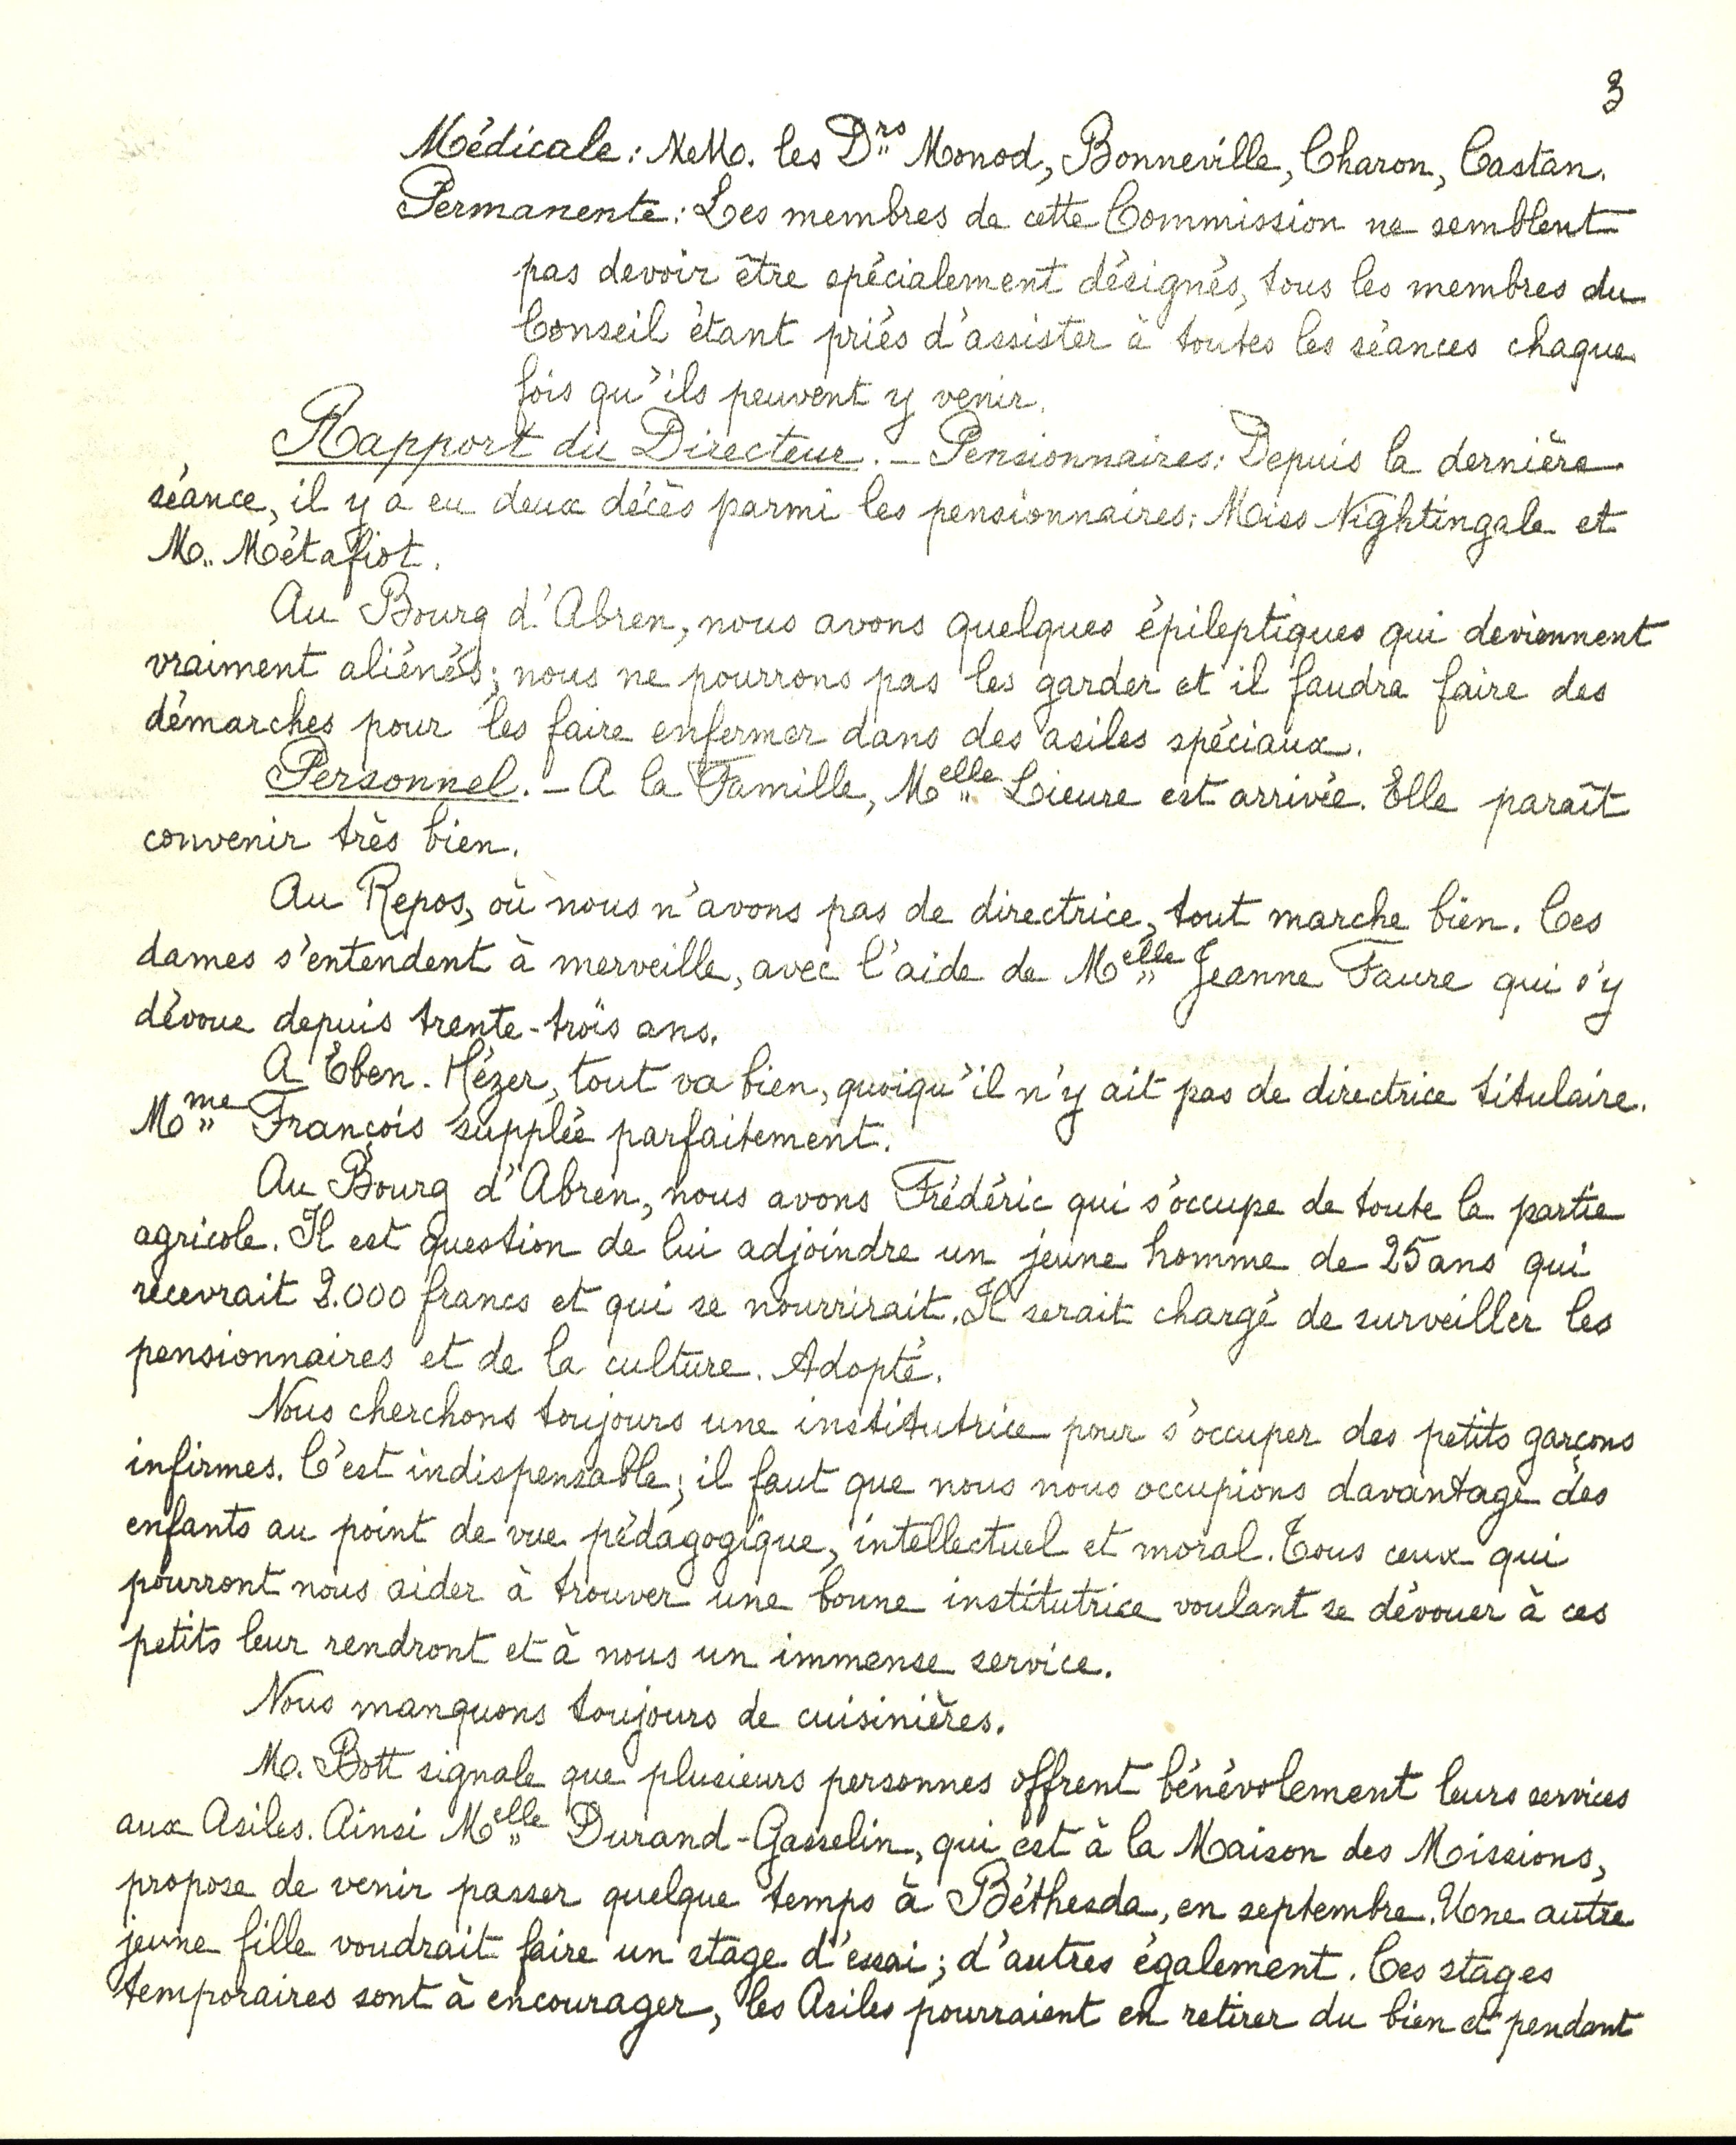 3
Médicale : MM. les Drs Monod, Bonneville, Charon, Castan.
Permanente : Les membres de cette Commission ne semblent
pas devoir être spécialement désignés, tous les membres du
Conseil étant priés d'assister à toutes les séances chaque
fois qu'ils peuvent y venir.
Rapport du Directeur. - Pensionnaires : Depuis la dernière
séance, il y a eu deux décès parmi les pensionnaires : Miss Nightingale et
M. Métafiot.
Au Bourg d'Abren, nous avons quelques épileptiques qui deviennent
vraiment aliénés ; nous ne pourrons pas les garder et il faudra faire des
démarches pour les faire enfermer dans des asiles spéciaux.
Personnel. - A la Famille, Melle Lieure est arrivée. Elle paraît
convenir très bien.
Au Repos, où nous n'avons pas de directrice, tout marche bien. Ces
dames s'entendent à merveille, avec l'aide de Melle Jeanne Faure qui s'y
dévoue depuis trente-trois ans.
A Eben-Hézer, tout va bien, quoiqu'il n'y ait pas de directrice titulaire.
Mme François supplée parfaitement.
Au Bourg d'Abren, nous avons Frédéric qui s'occupe de toute la partie
agricole. Il est question de lui adjoindre un jeune homme de 25 ans qui
recevrait 2.000 francs et qui se nourrirait. Il serait chargé de surveiller les
pensionnaires et de la culture. Adopté.
Nous cherchons toujours une institutrice pour s'occuper des petits garçons
infirmes. C'est indispensable ; il faut que nous nous occupions davantage des
enfants au point de vue pédagogique, intellectuel et moral. Tous ceux qui
pourront nous aider à trouver une bonne institutrice voulant se dévouer à ces
petits leur rendront et à nous un immense service.
Nous manquons toujours de cuisinières.
M. Bott signale que plusieurs personnes offrent bénévolement leurs services
aux Asiles. Ainsi Melle Durand-Gasselin, qui est à la Maison des Missions,
propose de venir passer quelque temps à Béthesda, en septembre. Une autre
jeune fille voudrait faire un stage d'essai ; d'autres également. Ces stages
temporaires sont à encourager, les Asiles pourraient en retirer du bien et pendant